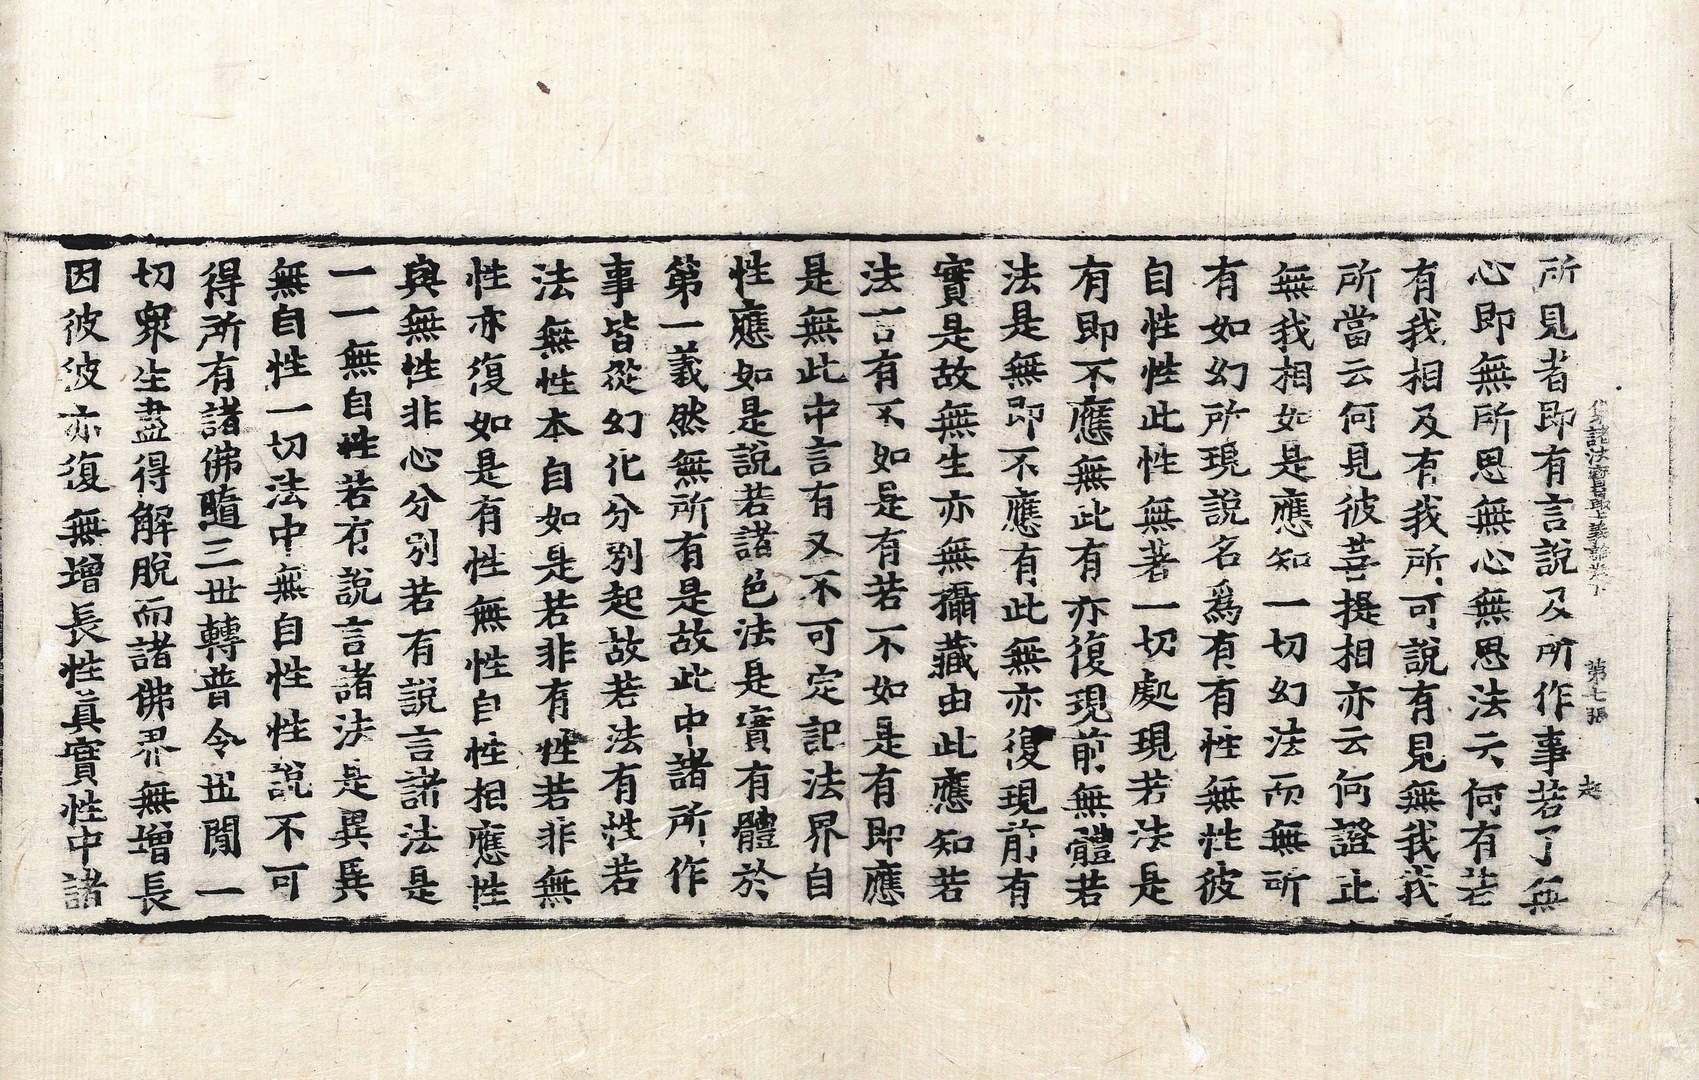 所見者即有言說及所作事若了無
心即無所思無心無思法云何有若
有我相及有我所可說有見無我我
所當云何見彼菩提相亦云何證此
無我相如是應知一切幻法而無所
有如幻所現說名爲有有性無性彼
自性性此性無著一切處現若法是
有即不應無此有亦復現前無體若
法是無即不應有此無亦復現前有
實是故無生亦無攝藏由此應知若
法言有不如是有若不如是有即應
是無此中言有又不可定記法界自
性應如是說若諸色法是實有體於
第一義然無所有是故此中諸所作
事皆從幻化分別起故若法有性若
法無性本自如是若非有性若非無
性亦復如是有性無性自性相應性
與無性非心分別若有說言諸法是
一一無自性若有說言諸法是異異
無自性一切法中無自性性說不可
得所有諸佛隨三世轉普令世閒一
切衆生盡得解脫而諸佛界無增長
因彼彼亦復無增長性眞實性中諸
第七張